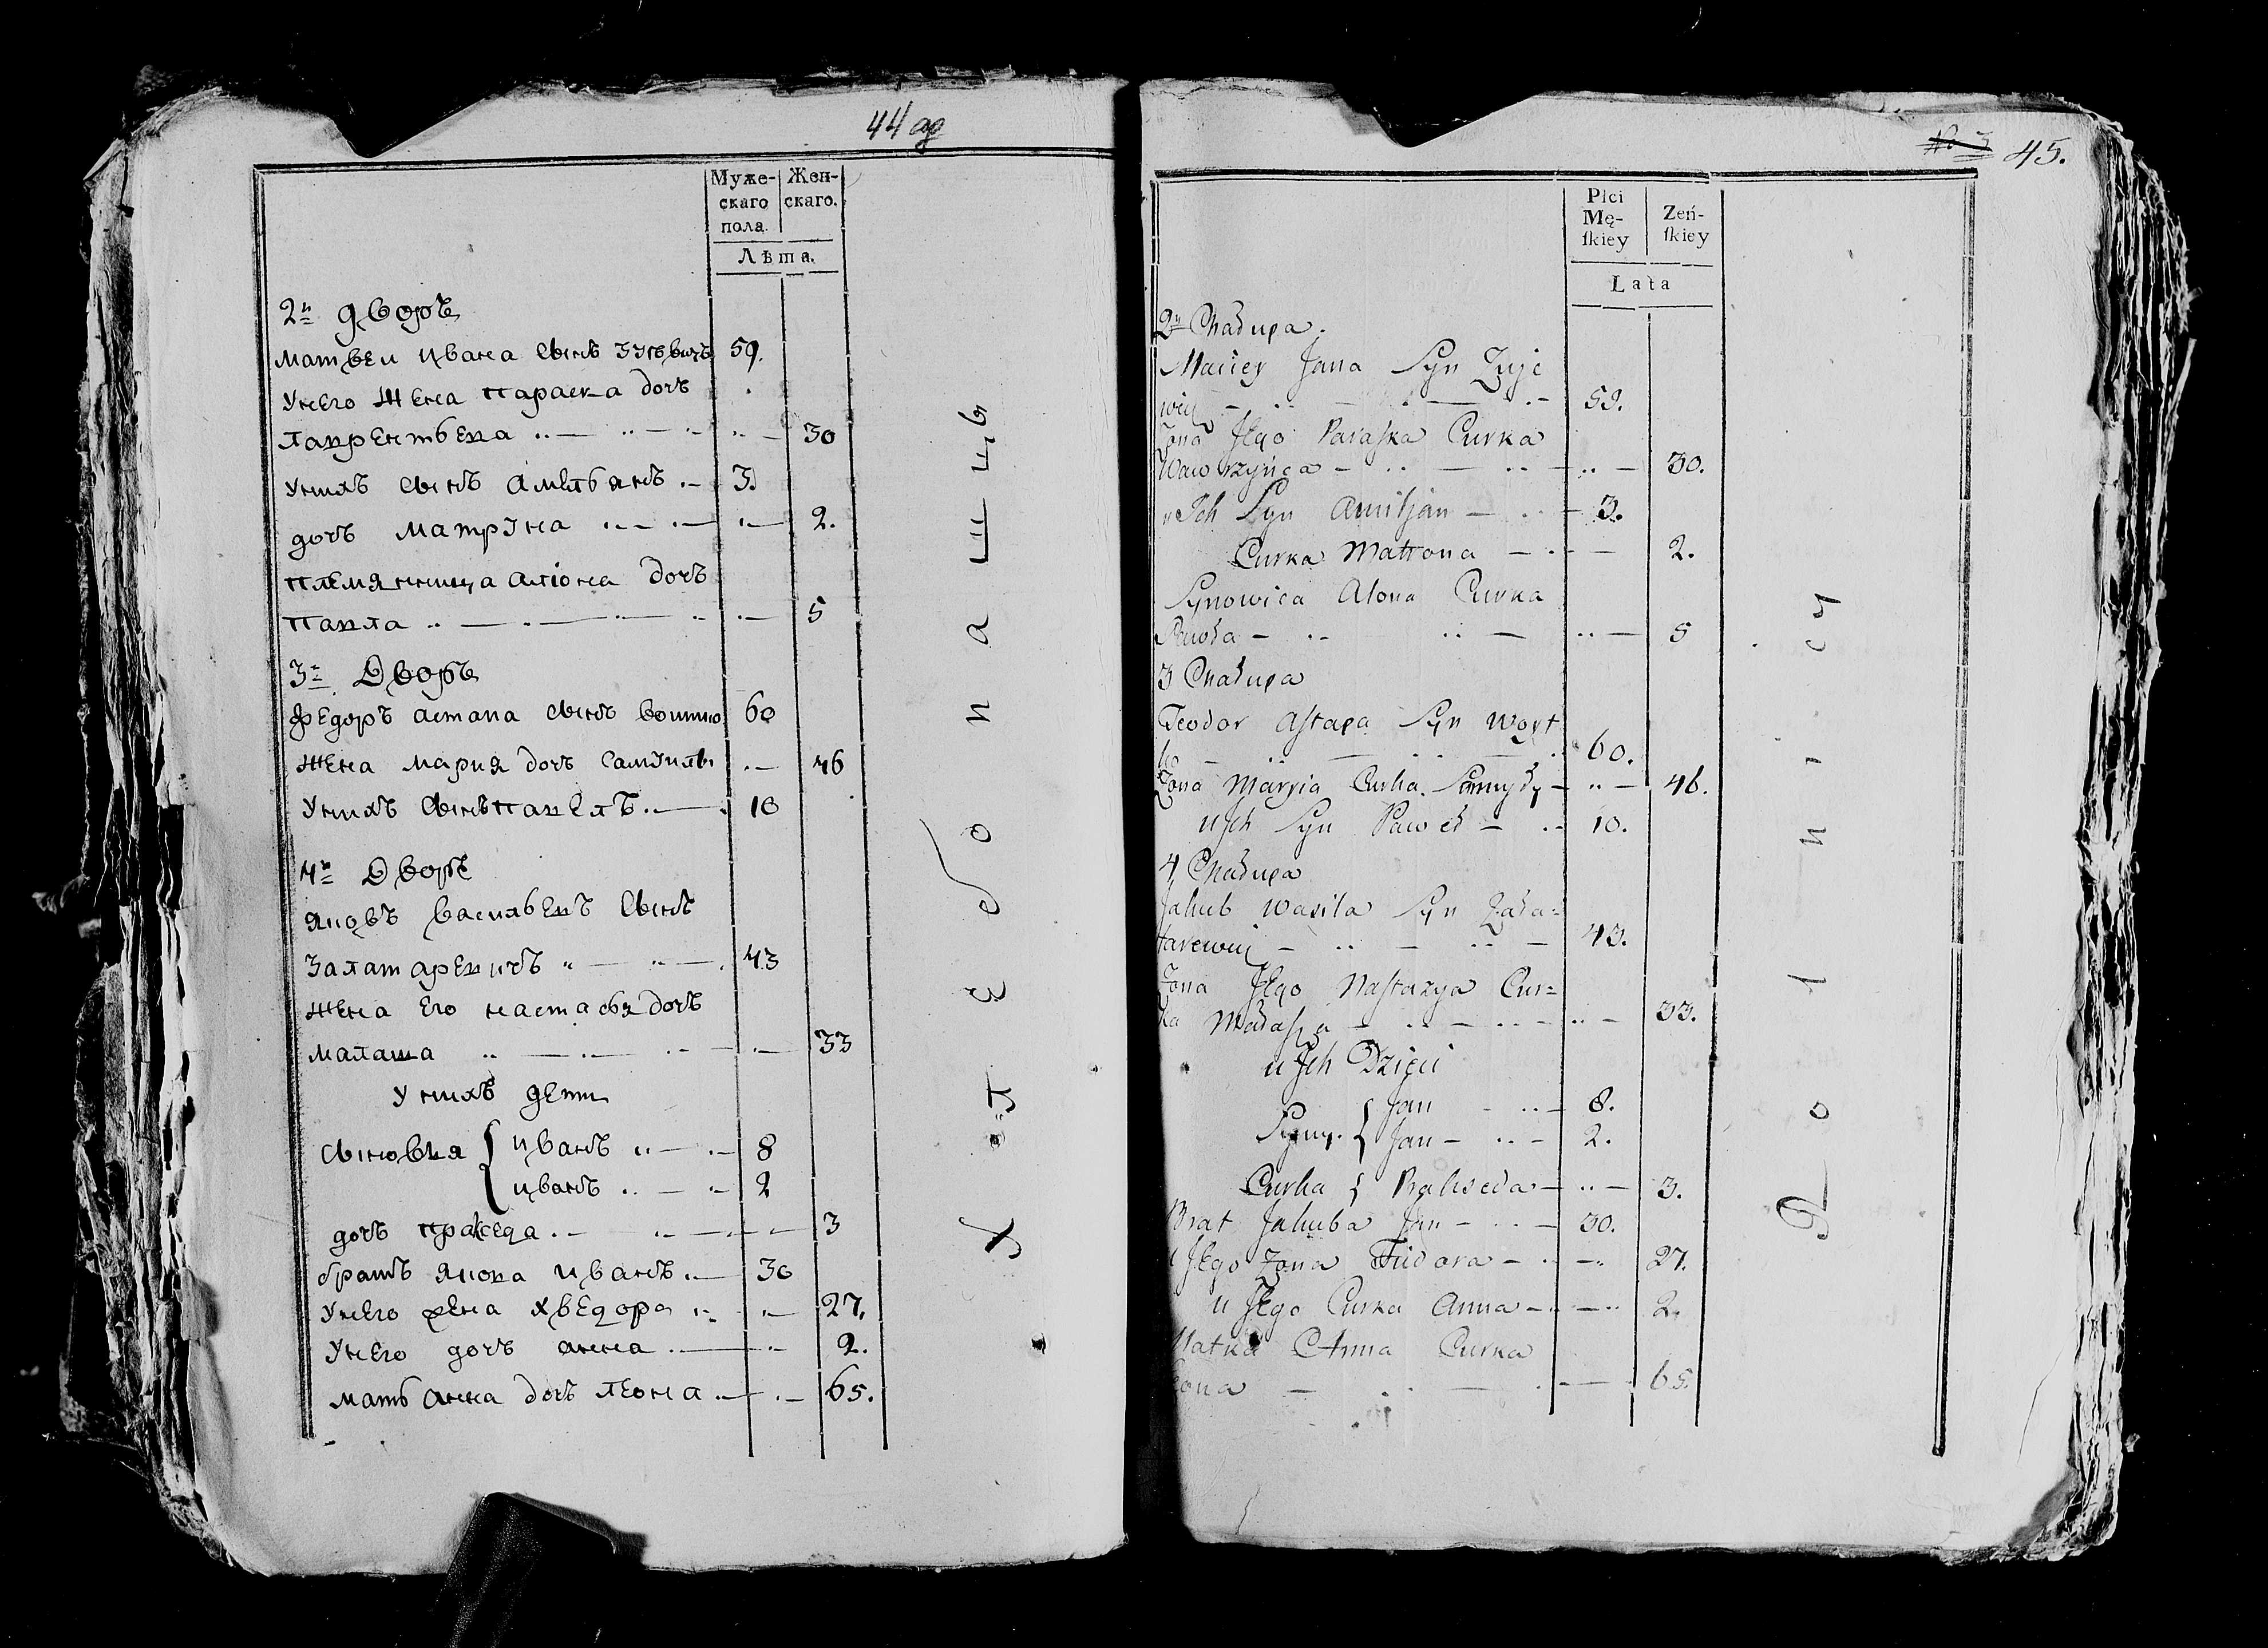 44 ар
Муже-
скаго
пола.
Жен-
скаго.
Лѣта.
2й дворъ
Матвеи ивана сынъ зуевичъ 59.
Унего жена параска дочъ
лаврентьева 30
Унихъ сынъ амельянъ 3.
дочъ матруна 2.
племянница алiона дочъ
павла 5
3й Дворъ
федоръ астапа сынъ воитко 60
жена мария дочъ самуилы 46
Унихъ сынъ павелъ 10
4й Дворъ
яковъ васильевъ сынъ
залатаревичъ 43
жена его настасья дочъ
малаша 33
Унихъ дети
сыновья { иванъ 8
иванъ 2
дочъ праkседа 3
братъ якова иванъ 30
Унего жена хведора 27.
Унего дочъ анна 2.
мать анна дочъ леона 65.
Хлебопашцы
№ 3 45.
Płci
Mę-
ſkiey
Zeń-
ſkiey
Lata
2й Chałupa.
Maciey Jana Syn Zuje
wicz 59.
Zona Jego Paraſka Curka
Wawrzyńca 30.
u Ich Syn Amiljan 3.
Curka Matrona 2.
Synowica Alona Curka
Pawła 5
3 Chałupa
Teodor Aſtapa Syn Woyt
ko 60.
Zona Maryia Curka Samuyły 46.
u Ich Syn Paweł 10.
4 Chałupa
Jakub Wasila Syn Zała=
tarewicz 43.
Zona Jego Naſtazya Cur=
ka Małaſza 33.
u Ich Dzieci
Syny. { Jan 8.
Jan 2.
Curka { Prakseda 3.
Brat Jakuba Jan 30.
u Jego Zona Fiudora 27.
u Jego Curka Anna 2.
Matka Anna Curka
Leona 65.
Rolnicy